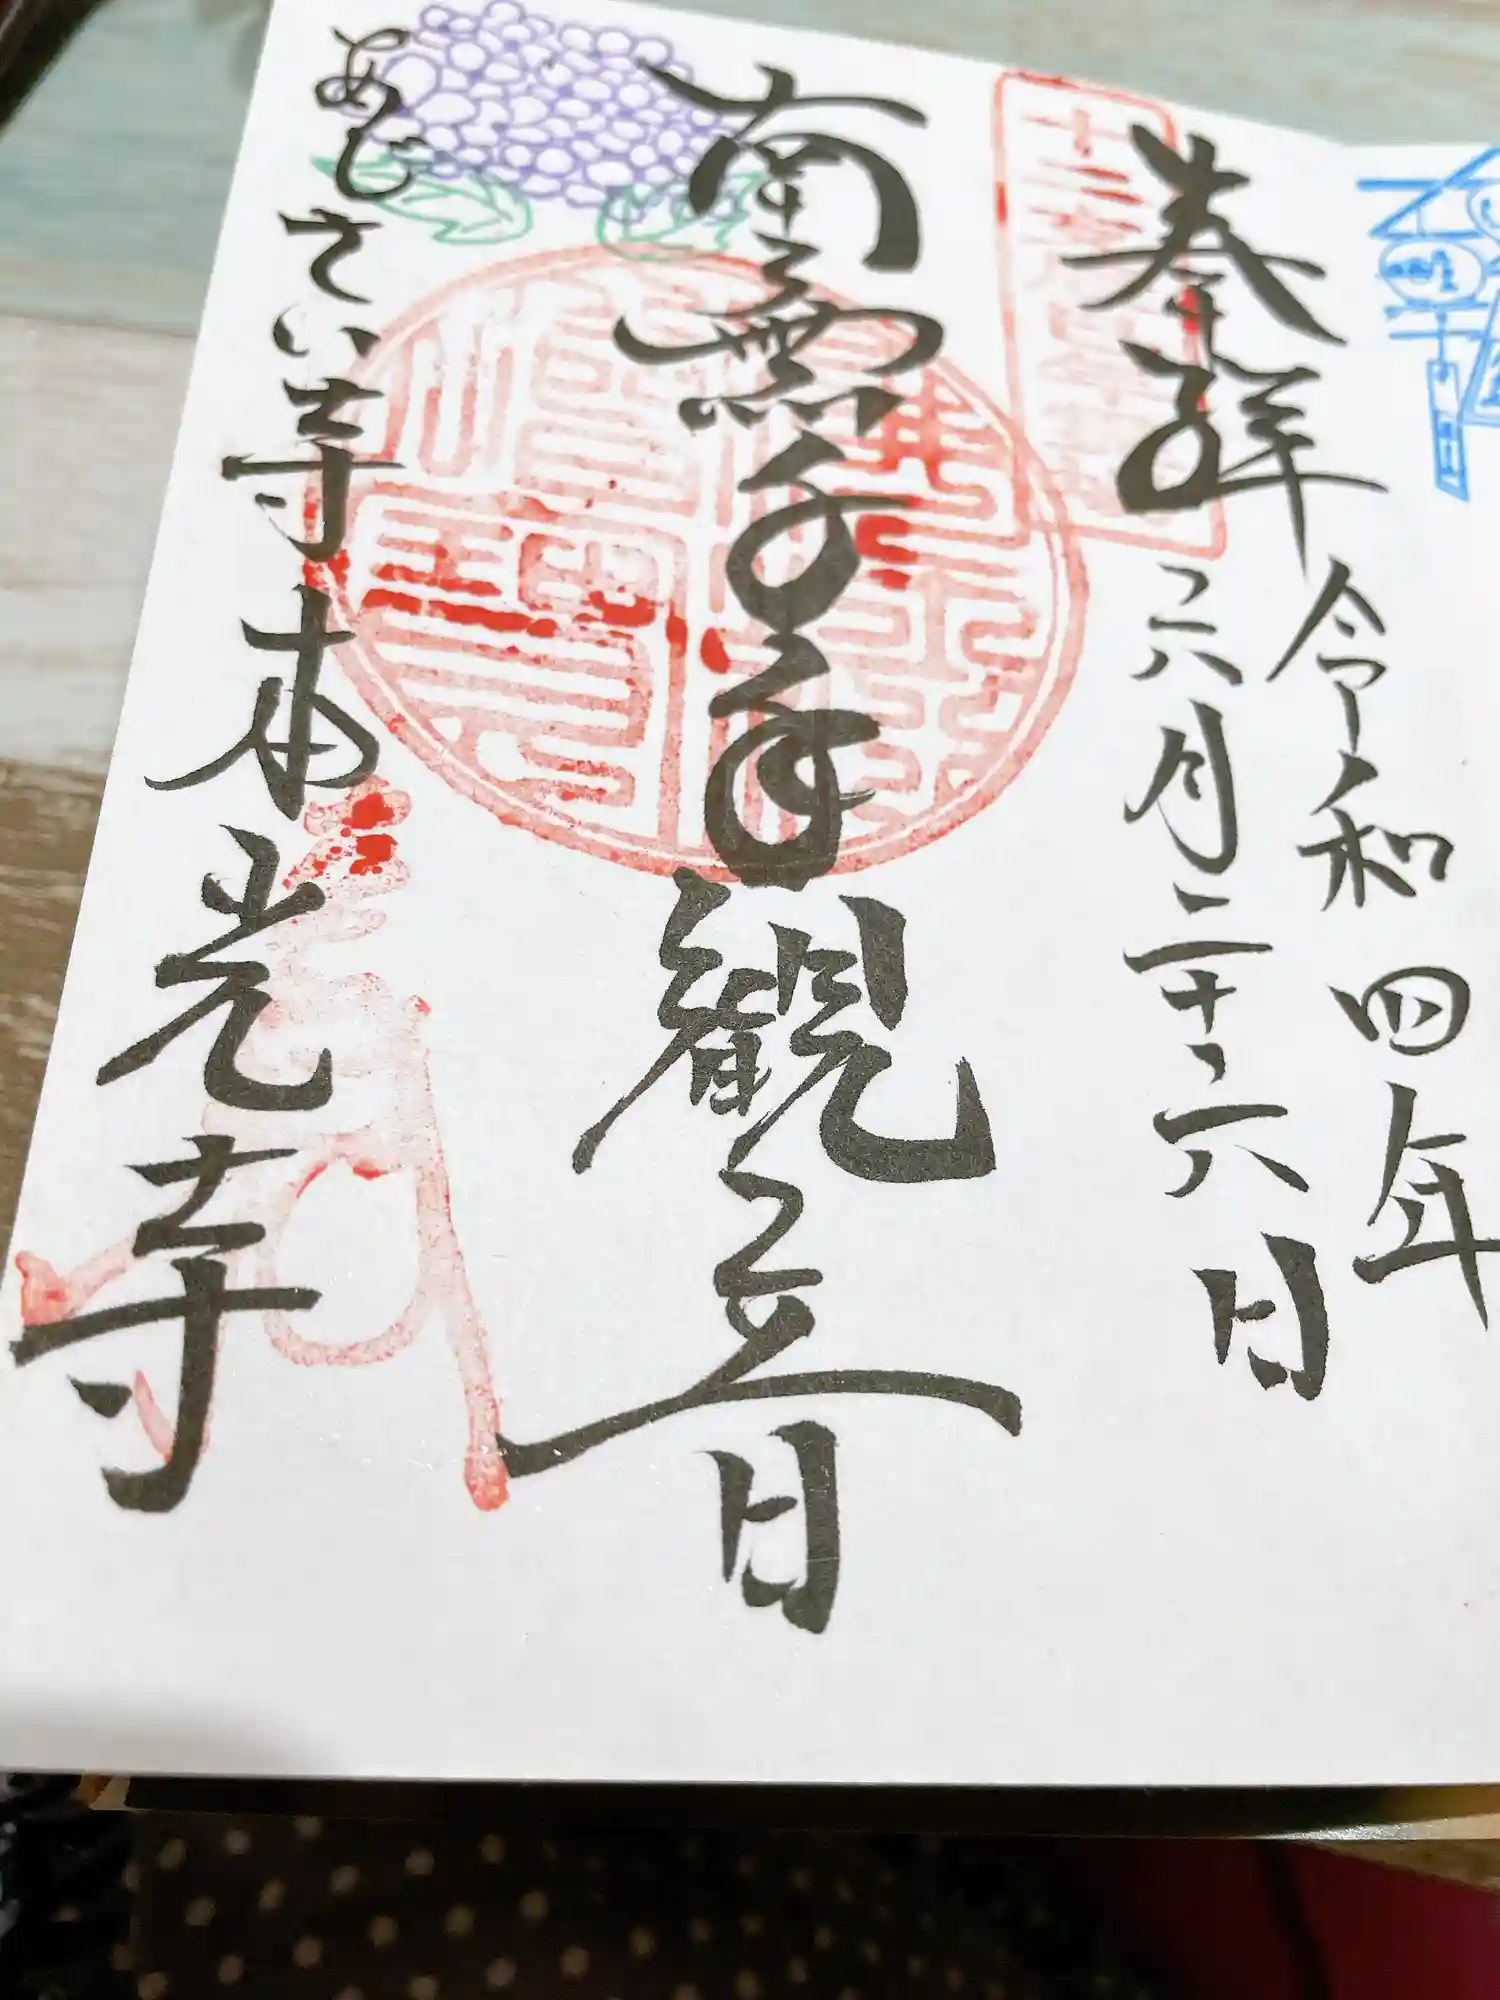 奉拝
令和四年
六月二十六日
南無千手観音
あじさい寺本光寺